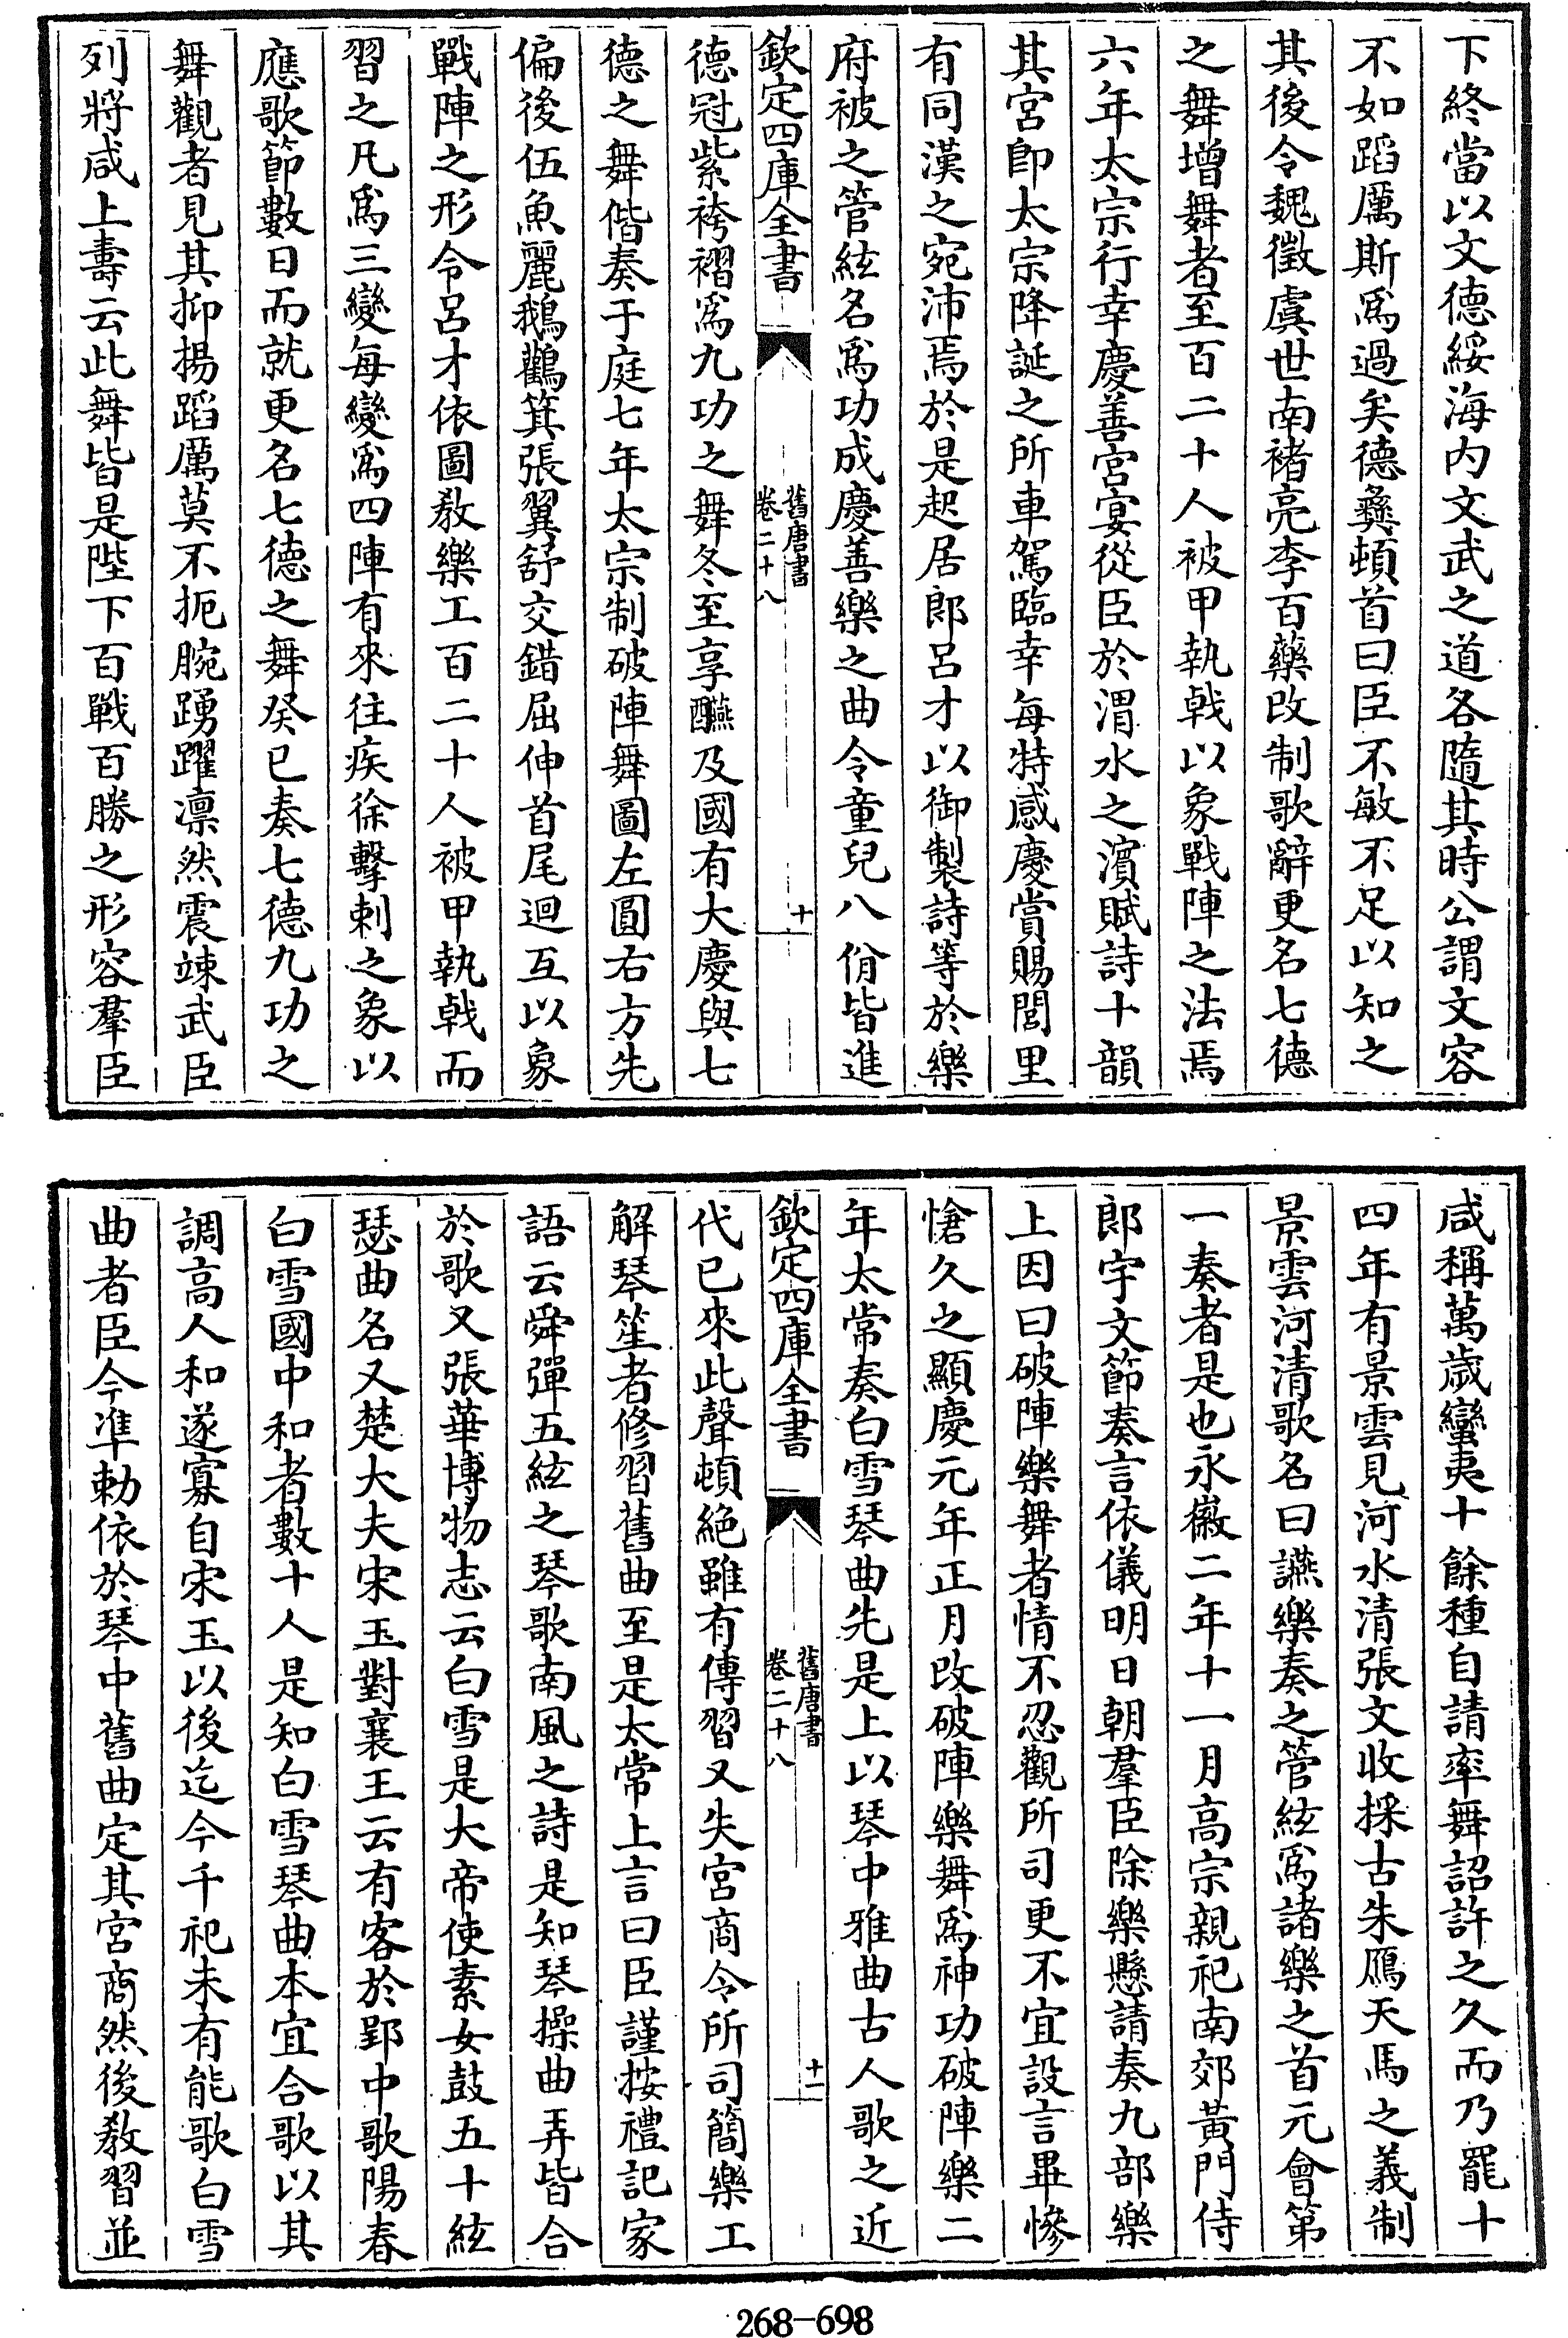 下終當以文德綏海内文武之道各隨其時公謂文容
不如蹈厲斯爲過矣德彝頓首曰臣不敏不足以知之
其後令魏徵虞世南褚亮李百藥改制歌辭更名七德
之舞增舞者至百二十人被甲執戟以象戰陣之法焉
六年太宗行幸慶善宫宴從臣於渭水之濱賦詩十韻
其宫卽太宗降誕之所車駕臨幸每特感慶賞賜閭里
有同漢之宛沛焉於是起居郎吕才以御製詩等於樂
府被之管絃名爲功成慶善樂之曲令童兒八佾皆進
欽定四庫全書
舊唐書
卷二十八
十
德冠紫袴褶爲九功之舞冬至享醼及國有大慶與七
德之舞偕奏于庭七年太宗制破陣舞圖左圓右方先
偏後伍魚麗鵝鸛箕張翼舒交錯屈伸首尾迴互以象
戰陣之形令吕才依圖敎樂工百二十人被甲執戟而
習之凡爲三變每變爲四陣有來往疾徐擊刺之象以
應歌節數日而就更名七德之舞癸巳奏七德九功之
舞觀者見其抑揚蹈厲莫不扼腕踴躍凛然震竦武臣
列將咸上壽云此舞皆是陛下百戰百勝之形容羣臣
咸稱萬歲蠻夷十餘種自請率舞詔許之久而乃罷十
四年有景雲見河水清張文收採古朱鴈天馬之義制
景雲河清歌名曰讌樂奏之管絃爲諸樂之首元會第
一奏者是也永徽二年十一月高宗親祀南郊黄門侍
郎宇文節奏言依儀明日朝羣臣除樂懸請奏九部樂
上因曰破陣樂舞者情不忍觀所司更不宜設言畢慘
愴久之顯慶元年正月改破陣樂舞爲神功破陣樂二
年太常奏白雪琴曲先是上以琴中雅曲古人歌之近
欽定四庫全書
舊唐書
卷二十八
十一
代已來此聲頓絶雖有傳習又失宫商令所司簡樂工
解琴笙者修習舊曲至是太常上言曰臣謹按禮記家
語云舜彈五絃之琴歌南風之詩是知琴操曲弄皆合
於歌又張華博物志云白雪是大帝使素女鼓五十絃
瑟曲名又楚大夫宋玉對襄王云有客於郢中歌陽春
白雪國中和者數十人是知白雪琴曲本宜合歌以其
調高人和遂寡自宋玉以後迄今千祀未有能歌白雪
曲者臣今準勅依於琴中舊曲定其宫商然後敎習並
268-698